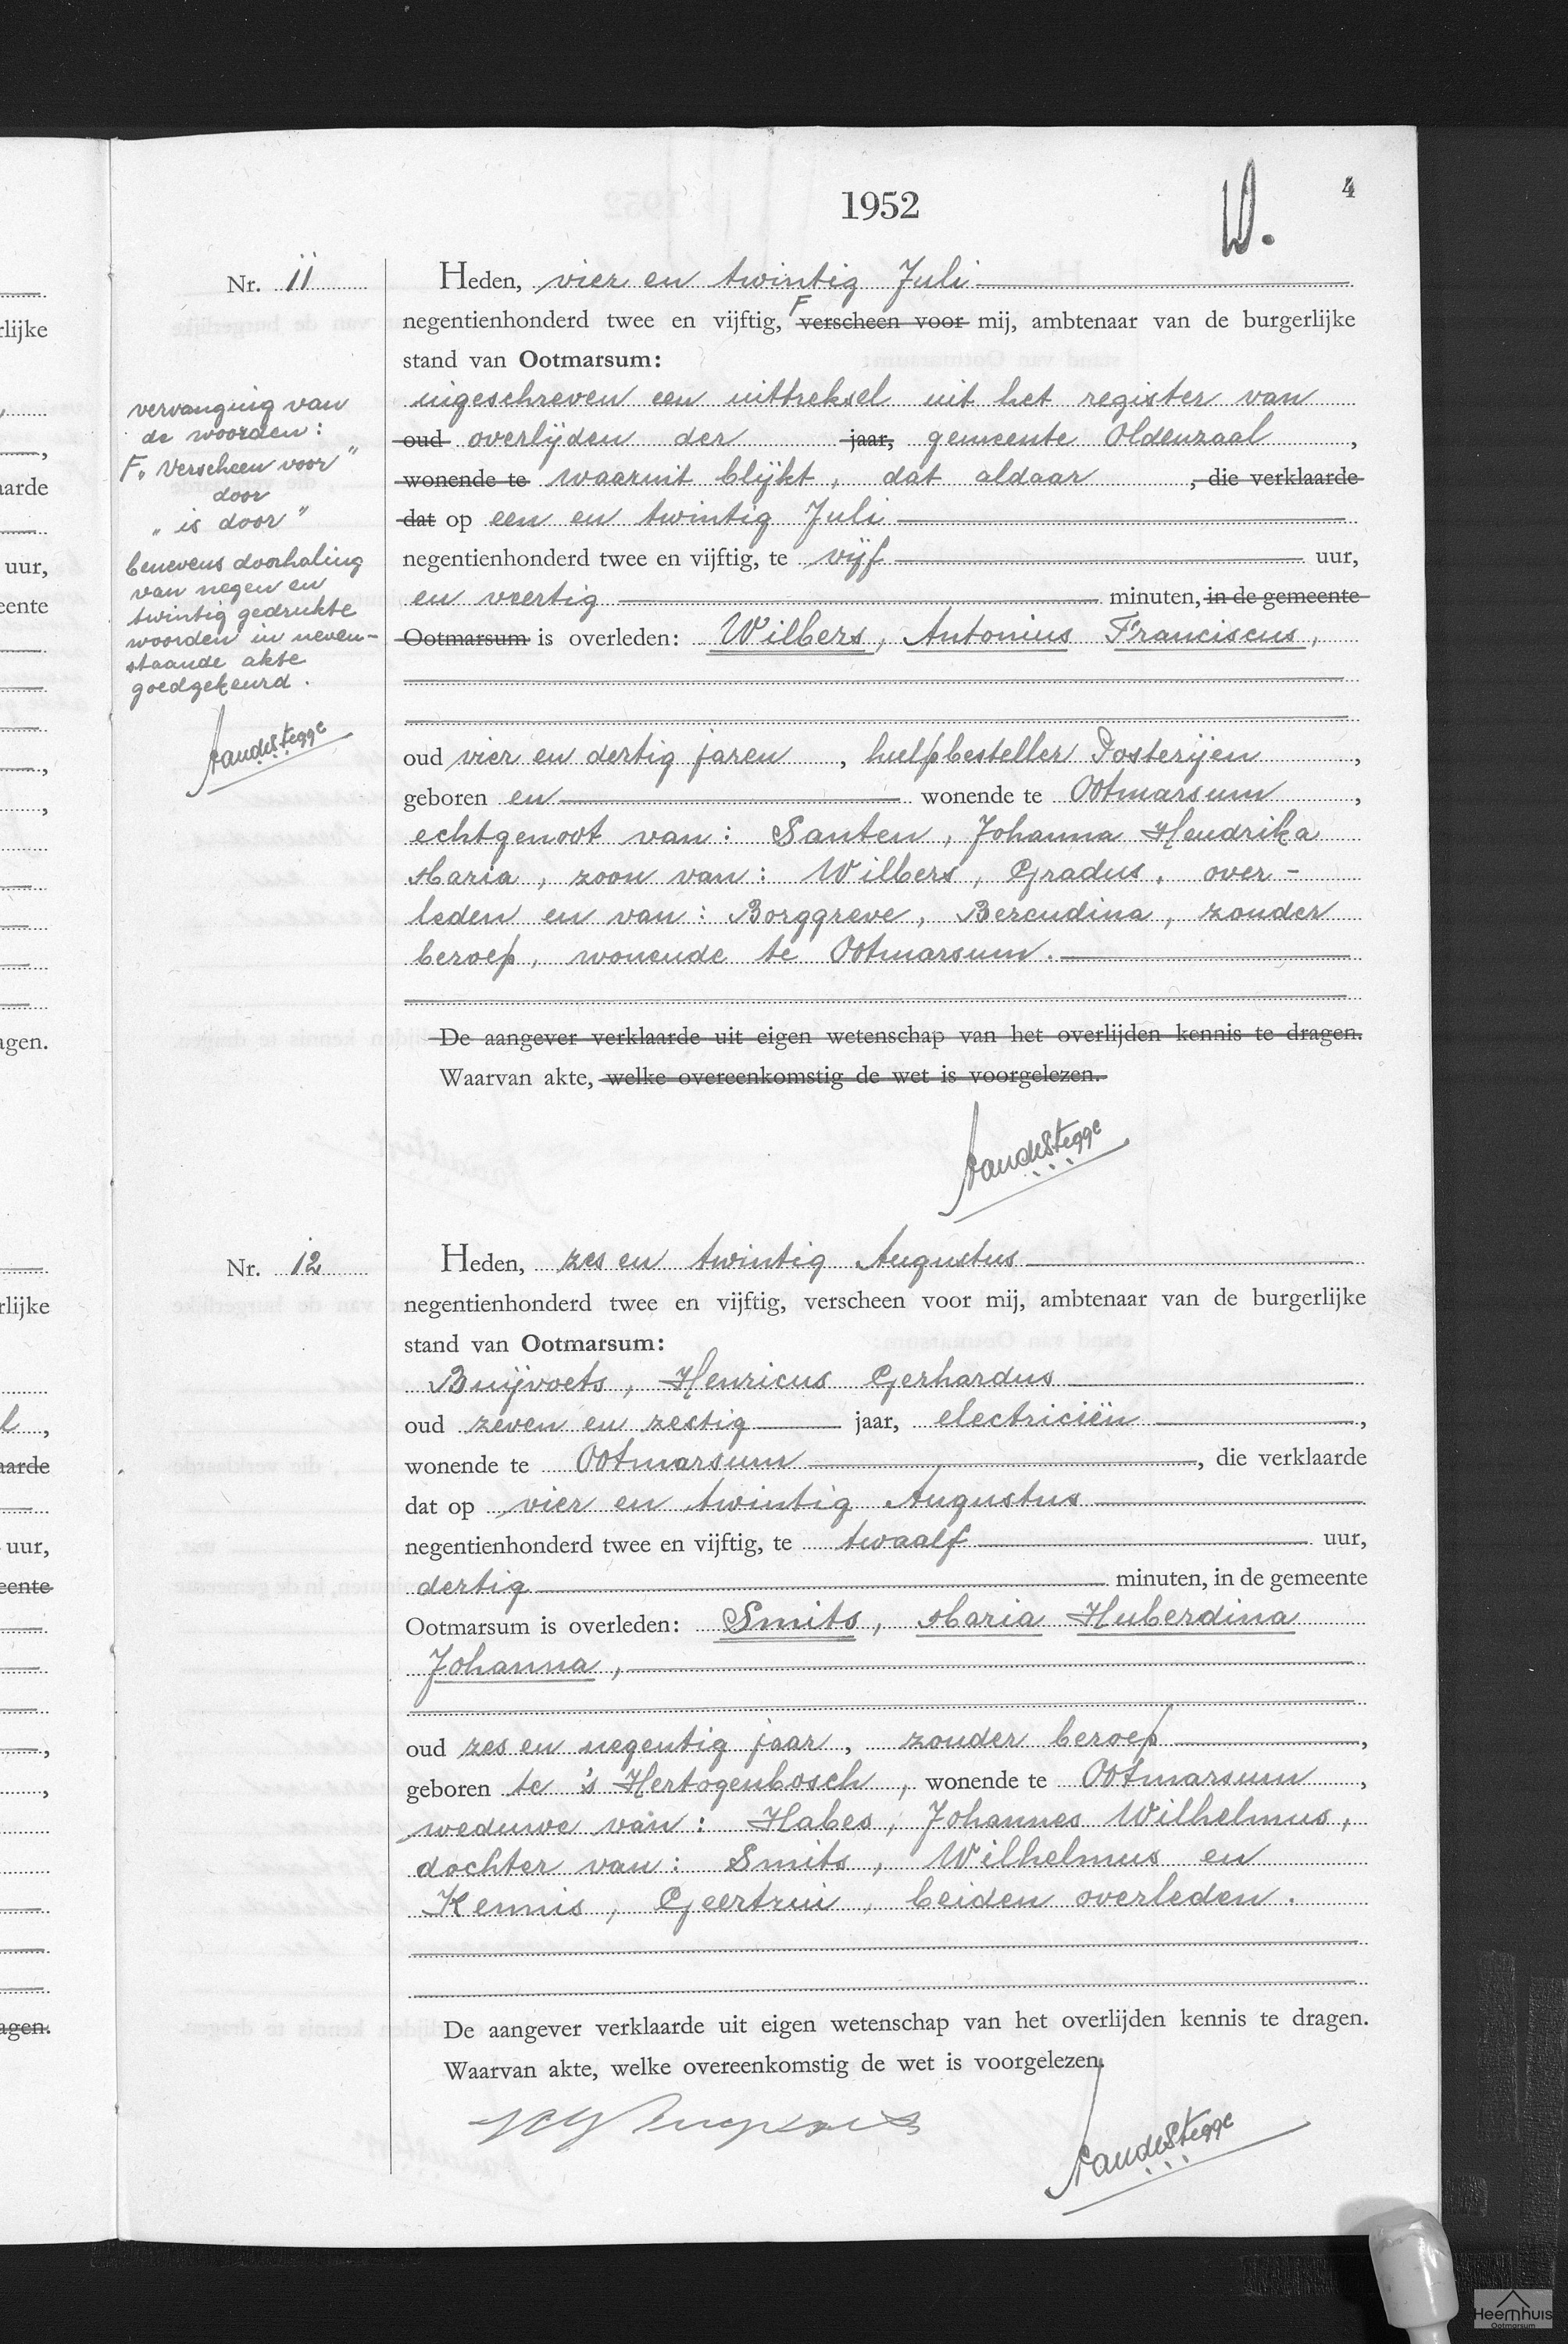 1952
W.
4
Nr. 11
Heden, vier en twintig Juli
negentienhonderd twee en vijftig, F verscheen voor mij, ambtenaar van de burgerlijke
stand van Ootmarsum:
ingeschreven een uittreksel uit het register van
oud overlijden der jaar, gemeente Oldenzaal,
wonende te waaruit blijkt, dat aldaar, die verklaarde
dat op een en twintig Juli
negentienhonderd twee en vijftig, te vijf uur,
en veertig minuten, in de gemeente
Ootmarsum is overleden: Wilbers, Antonius Franciscus,
oud vier en dertig jaren, hulpbesteller Posterijen,
geboren en wonende te Ootmarsum,
echtgenoot van: Santen, Johanna Hendrika
Maria, zoon van: Wilbers, Gradus, over-
leden en van: Borggreve, Berendina, zonder
beroep, wonende te Ootmarsum.
De aangever verklaarde uit eigen wetenschap van het overlijden kennis te dragen.
Waarvan akte, welke overeenkomstig de wet is voorgelezen.
vervanging van
de woorden:
F. Verscheen voor"
door
"is door"
benevens doorhaling
van negen en
twintig gedrukte
woorden in neven-
staande akte
goedgekeurd.
Nr. 12
Heden, zes en twintig Augustus
negentienhonderd twee en vijftig, verscheen voor mij, ambtenaar van de burgerlijke
stand van Ootmarsum:
Buijvoets, Henricus Gerhardus
oud zeven en zestig jaar, electriciën,
wonende te Ootmarsum, die verklaarde
dat op vier en twintig Augustus
negentienhonderd twee en vijftig, te twaalf uur,
dertig minuten, in de gemeente
Ootmarsum is overleden: Smits, Maria Huberdina
Johanna,
oud zes en negentig jaar, zonder beroep,
geboren te 's Hertogenbosch, wonende te Ootmarsum,
weduwe van: Habes, Johannes Wilhelmus,
dochter van: Smits, Wilhelmus en
Kennis, Geertrui, beiden overleden.
De aangever verklaarde uit eigen wetenschap van het overlijden kennis te dragen.
Waarvan akte, welke overeenkomstig de wet is voorgelezen.
rlijke
aarde
uur,
eente
agen.
rlijke
aarde
uur,
eente
agen.
Heemhuis
Ootmarsum